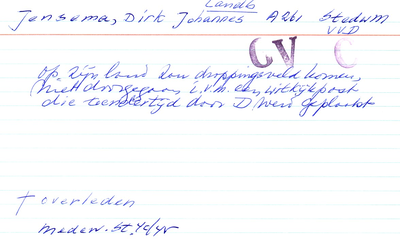 Landb
Jensema, Dirk Johannes A261 Stedum
VVD
CV C
op zijn land zou droppingsveld komen,
(niet doorgegaan i.v.m. een uitkijkpost
die teendertijd door D werd geplaatst
† overleden
medew. St.